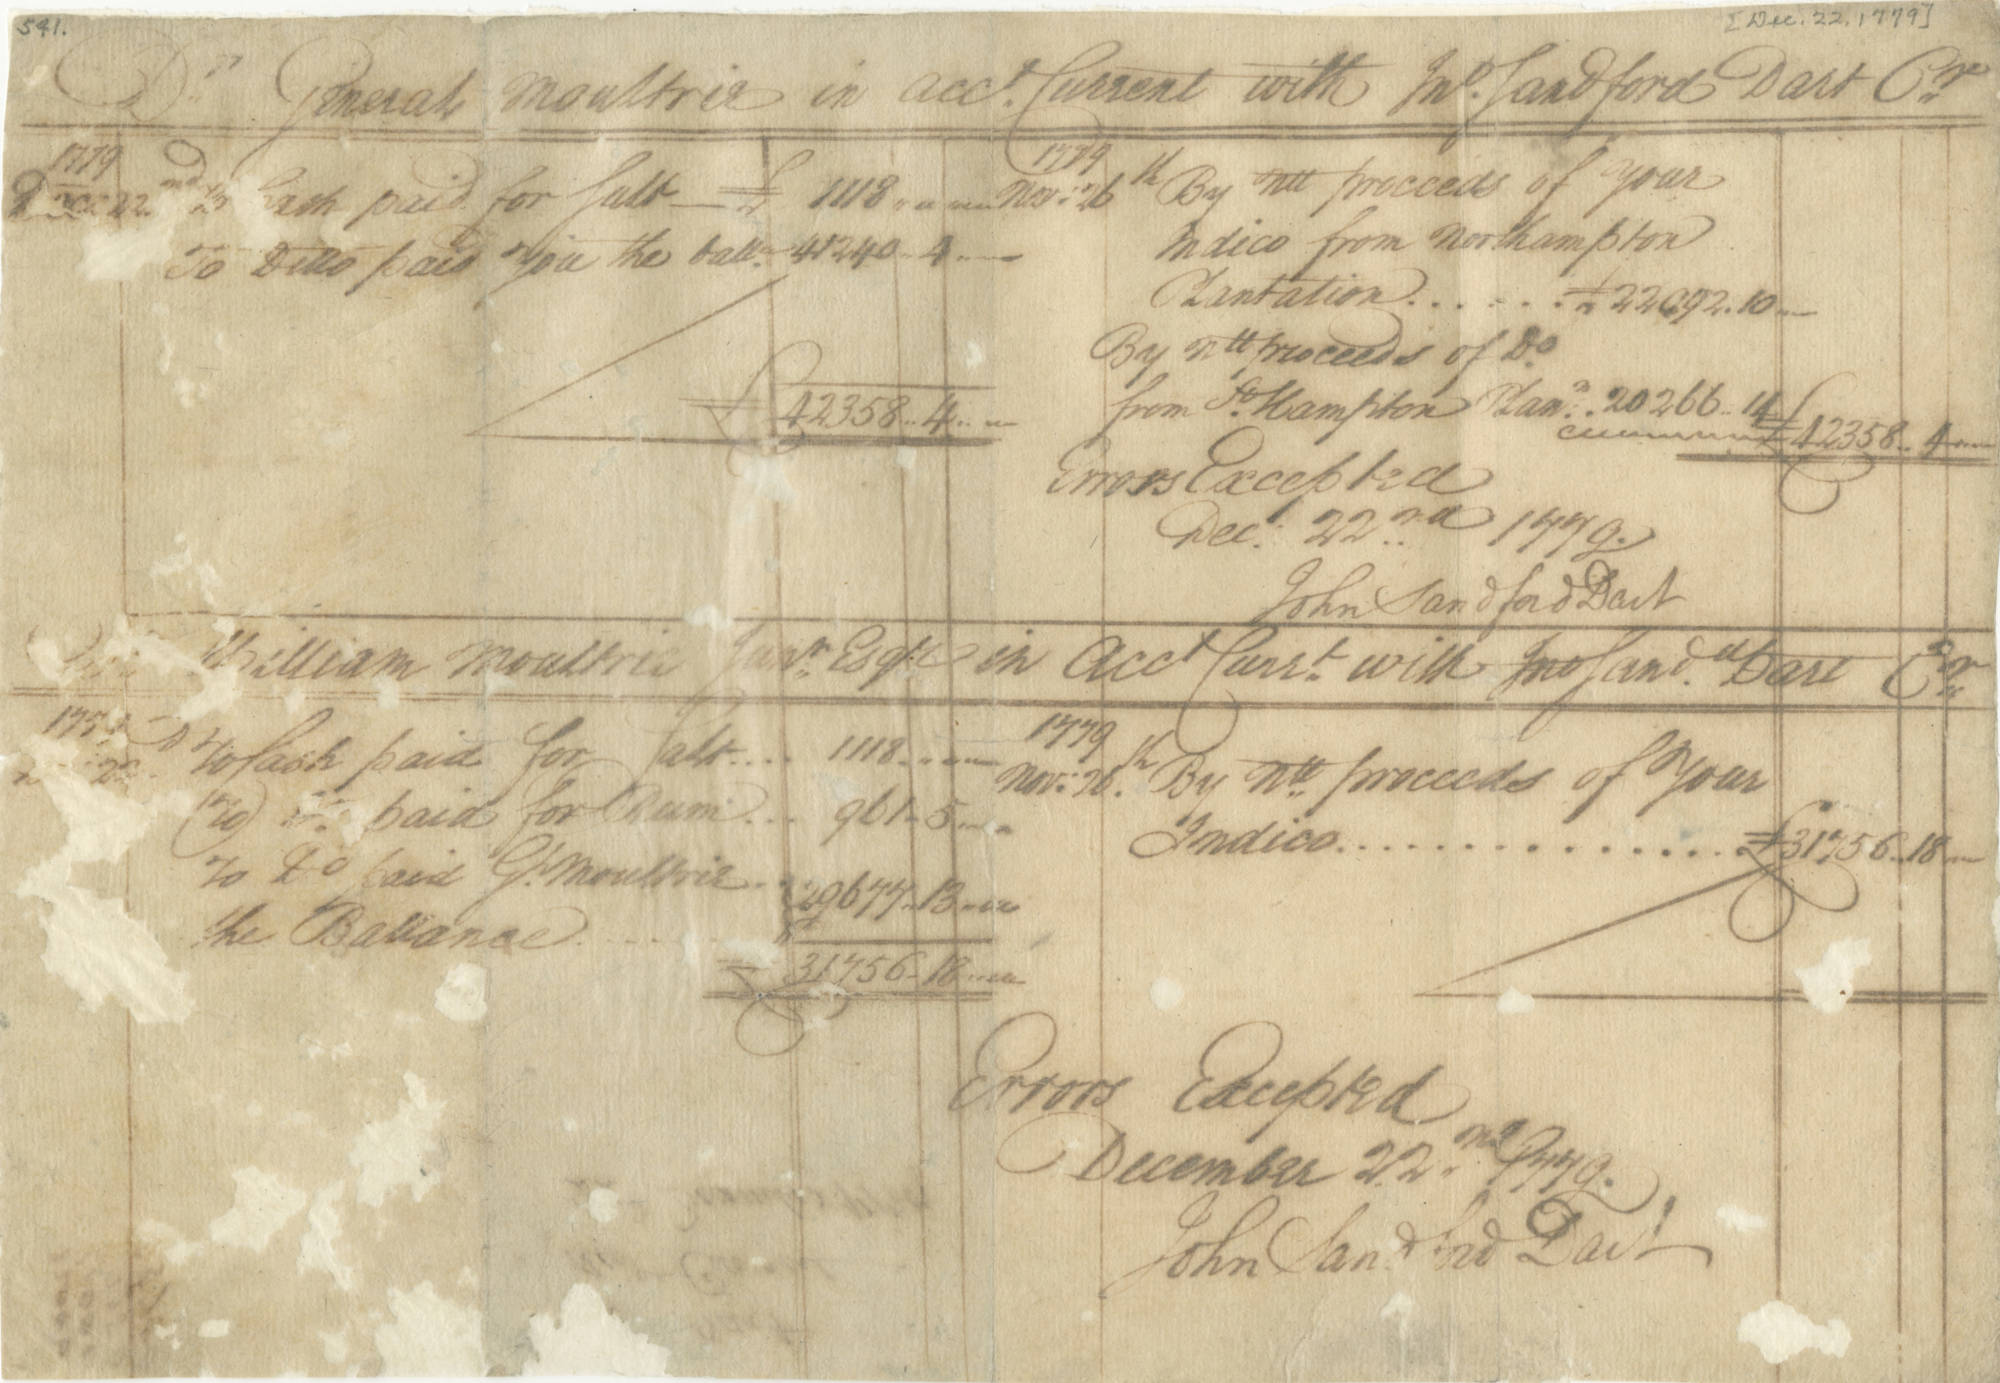 541.
[Dec. 22. 1779]
Dr. General Moultrie in acct. Current with Jno. Sandford Dart Cr.
1779
Decr. 22nd To Cash paid for Salt £ 1118
To Ditto paid You the balle. 41240 .. 4
£ 42358 .. 4
1779
Nov: 26th By Ntt proceeds of Your
Indico from Northampton
Plantation . . . . . . £ 22092 . 10
By Ntt proceeds of Do
from So. Hampton Plann. . 20266 .. 14
£ 42358 .. 4
Errors Excepted
Decr. 22nd 1779.
John Sandford Dart
William Moultrie Junr. Esqr. in Acct Currt. with Jno Sandd. Dart Cr.
177
22 To Cash paid for Salt.... 1118
To Do. paid for Rum... 961 .. 5
To Do paid Gl. Moultrie ..
the Ballance . . . . . . 29677 .. 13
£ 31756 .. 18
1779
Nov: 26th. By Ntt. proceeds of Your
Indico . . . . . . . . . . . . . . £ 31756 .. 18
Errors Excepted
December 22nd 1779.
John Sandford Dart